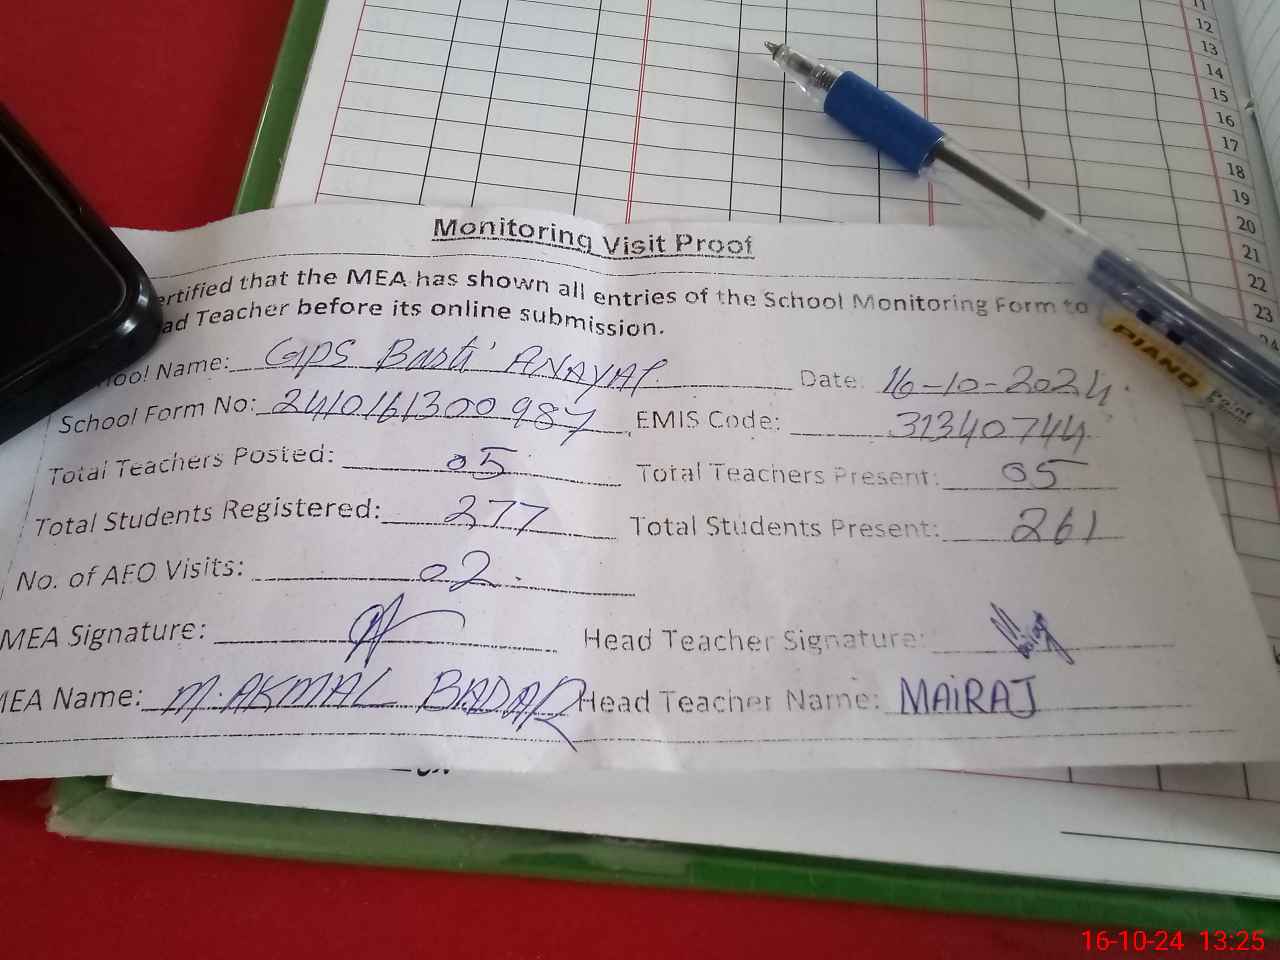 11
12
13
14
15
16
17
18
19
20
21
22
23
24
PIANO
Point
Monitoring Visit Proof
ertified that the MEA has shown all entries of the School Monitoring Form to
ad Teacher before its online submission.
hool Name: GPS Basti ANAYAT Date: 16-10-2024.
School Form No: 2410161300987 EMIS Code: 31340744
Total Teachers Posted: 05 Total Teachers Present: 05
Total Students Registered: 277 Total Students Present: 261
No. of AEO Visits: 02.
MEA Signature: Head Teacher Signature:
MEA Name: M. AKMAL BADAR Head Teacher Name: MAiRAJ
16-10-24 13:25